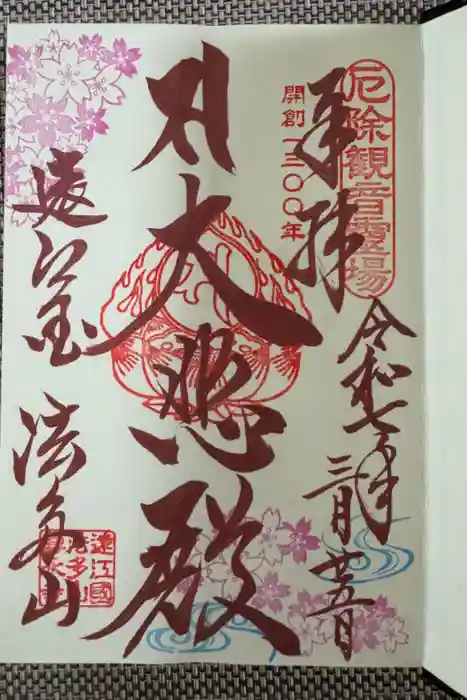 厄除観音霊場
奉拝
開創一三〇〇年
令和七年
三月廿五日
大悲殿
遠江國
法多山